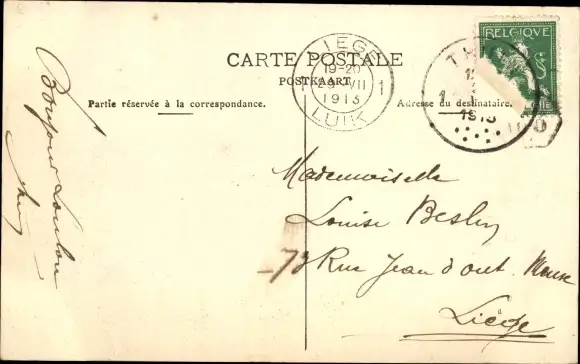 CARTE POSTALE
POSTKAART
Partie réservée à la correspondance.
Adresse du destinataire.
LIEGE
19-20
29 VII
1913
LUIK
1 1
BELGIQUE
1913
Bonjour Loulou
Mademoiselle
Louise
73 Rue Jean d'out. Meuse
Liège